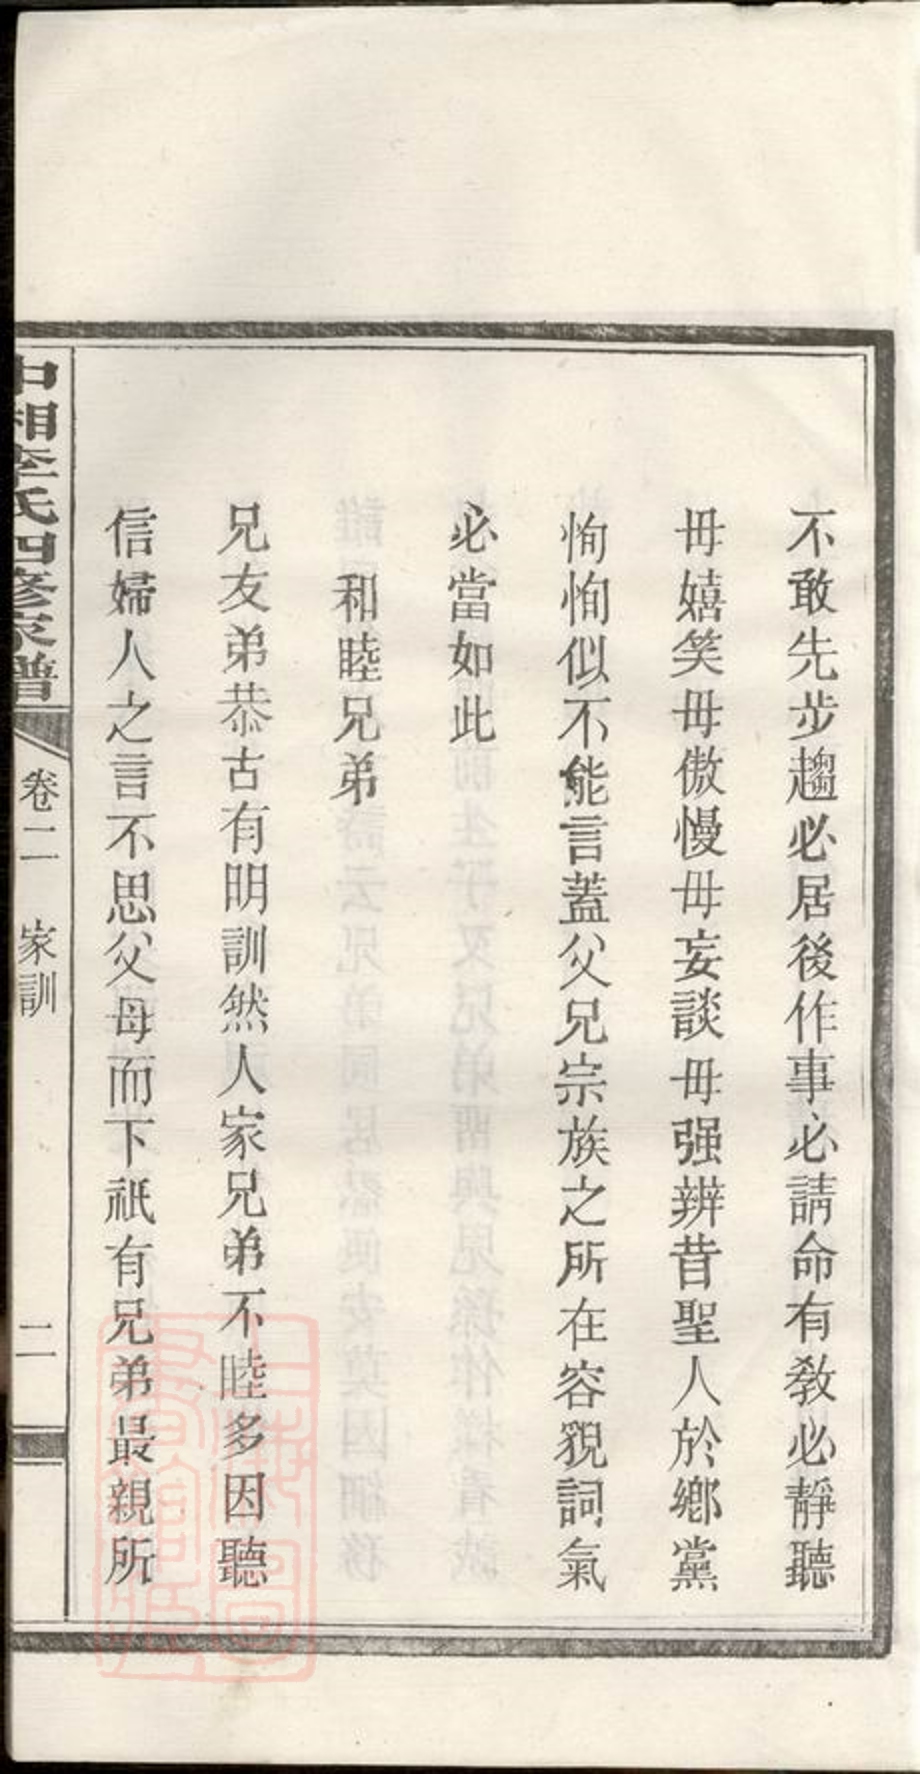 不敢先步趨必居後作事必請命有敎必靜聽
毋嬉笑毋傲慢毋妄談毋强辨昔聖人於鄉黨
恂恂似不能言蓋父兄宗族之所在容貌詞氣
必當如此
和睦兄弟
兄友弟恭古有明訓然人家兄弟不睦多因聽
信婦人之言不思父母而下祇有兄弟最親所
中湘李氏四修家譜
卷二
家訓
二